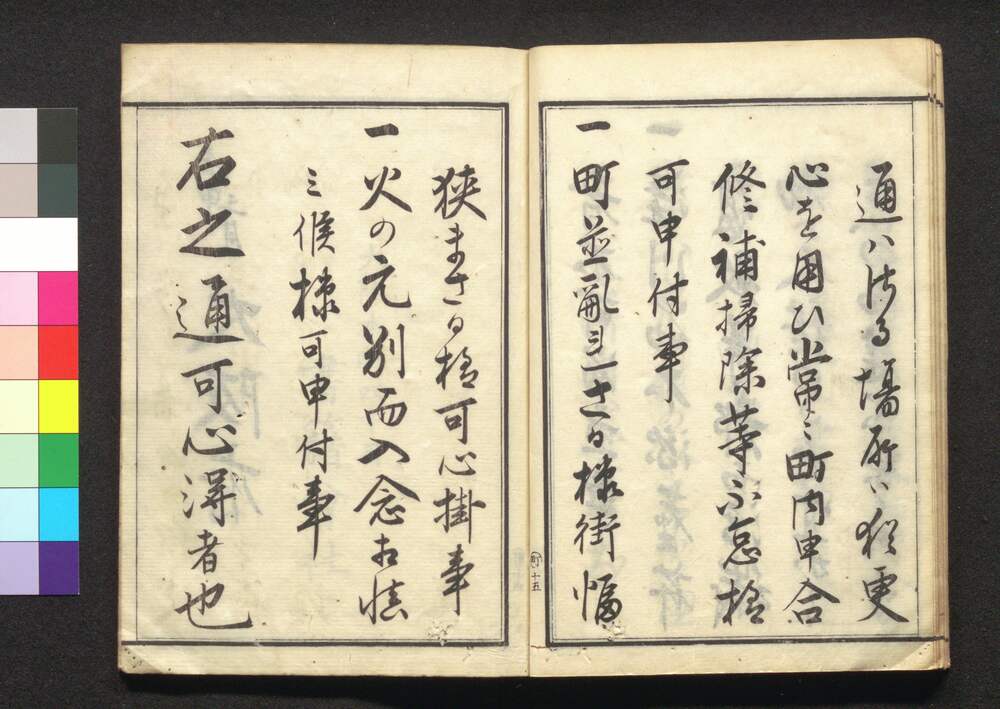 通ハ涛る場所ハ猶更
心を用ひ常々町内申合
修補掃除等不怠様
可申付事
一町並乱レさる様街幅
狭まさる様可心掛事
一火の元別而入念相慎
ミ候様可申付事
右之通可心得者也
町 十五